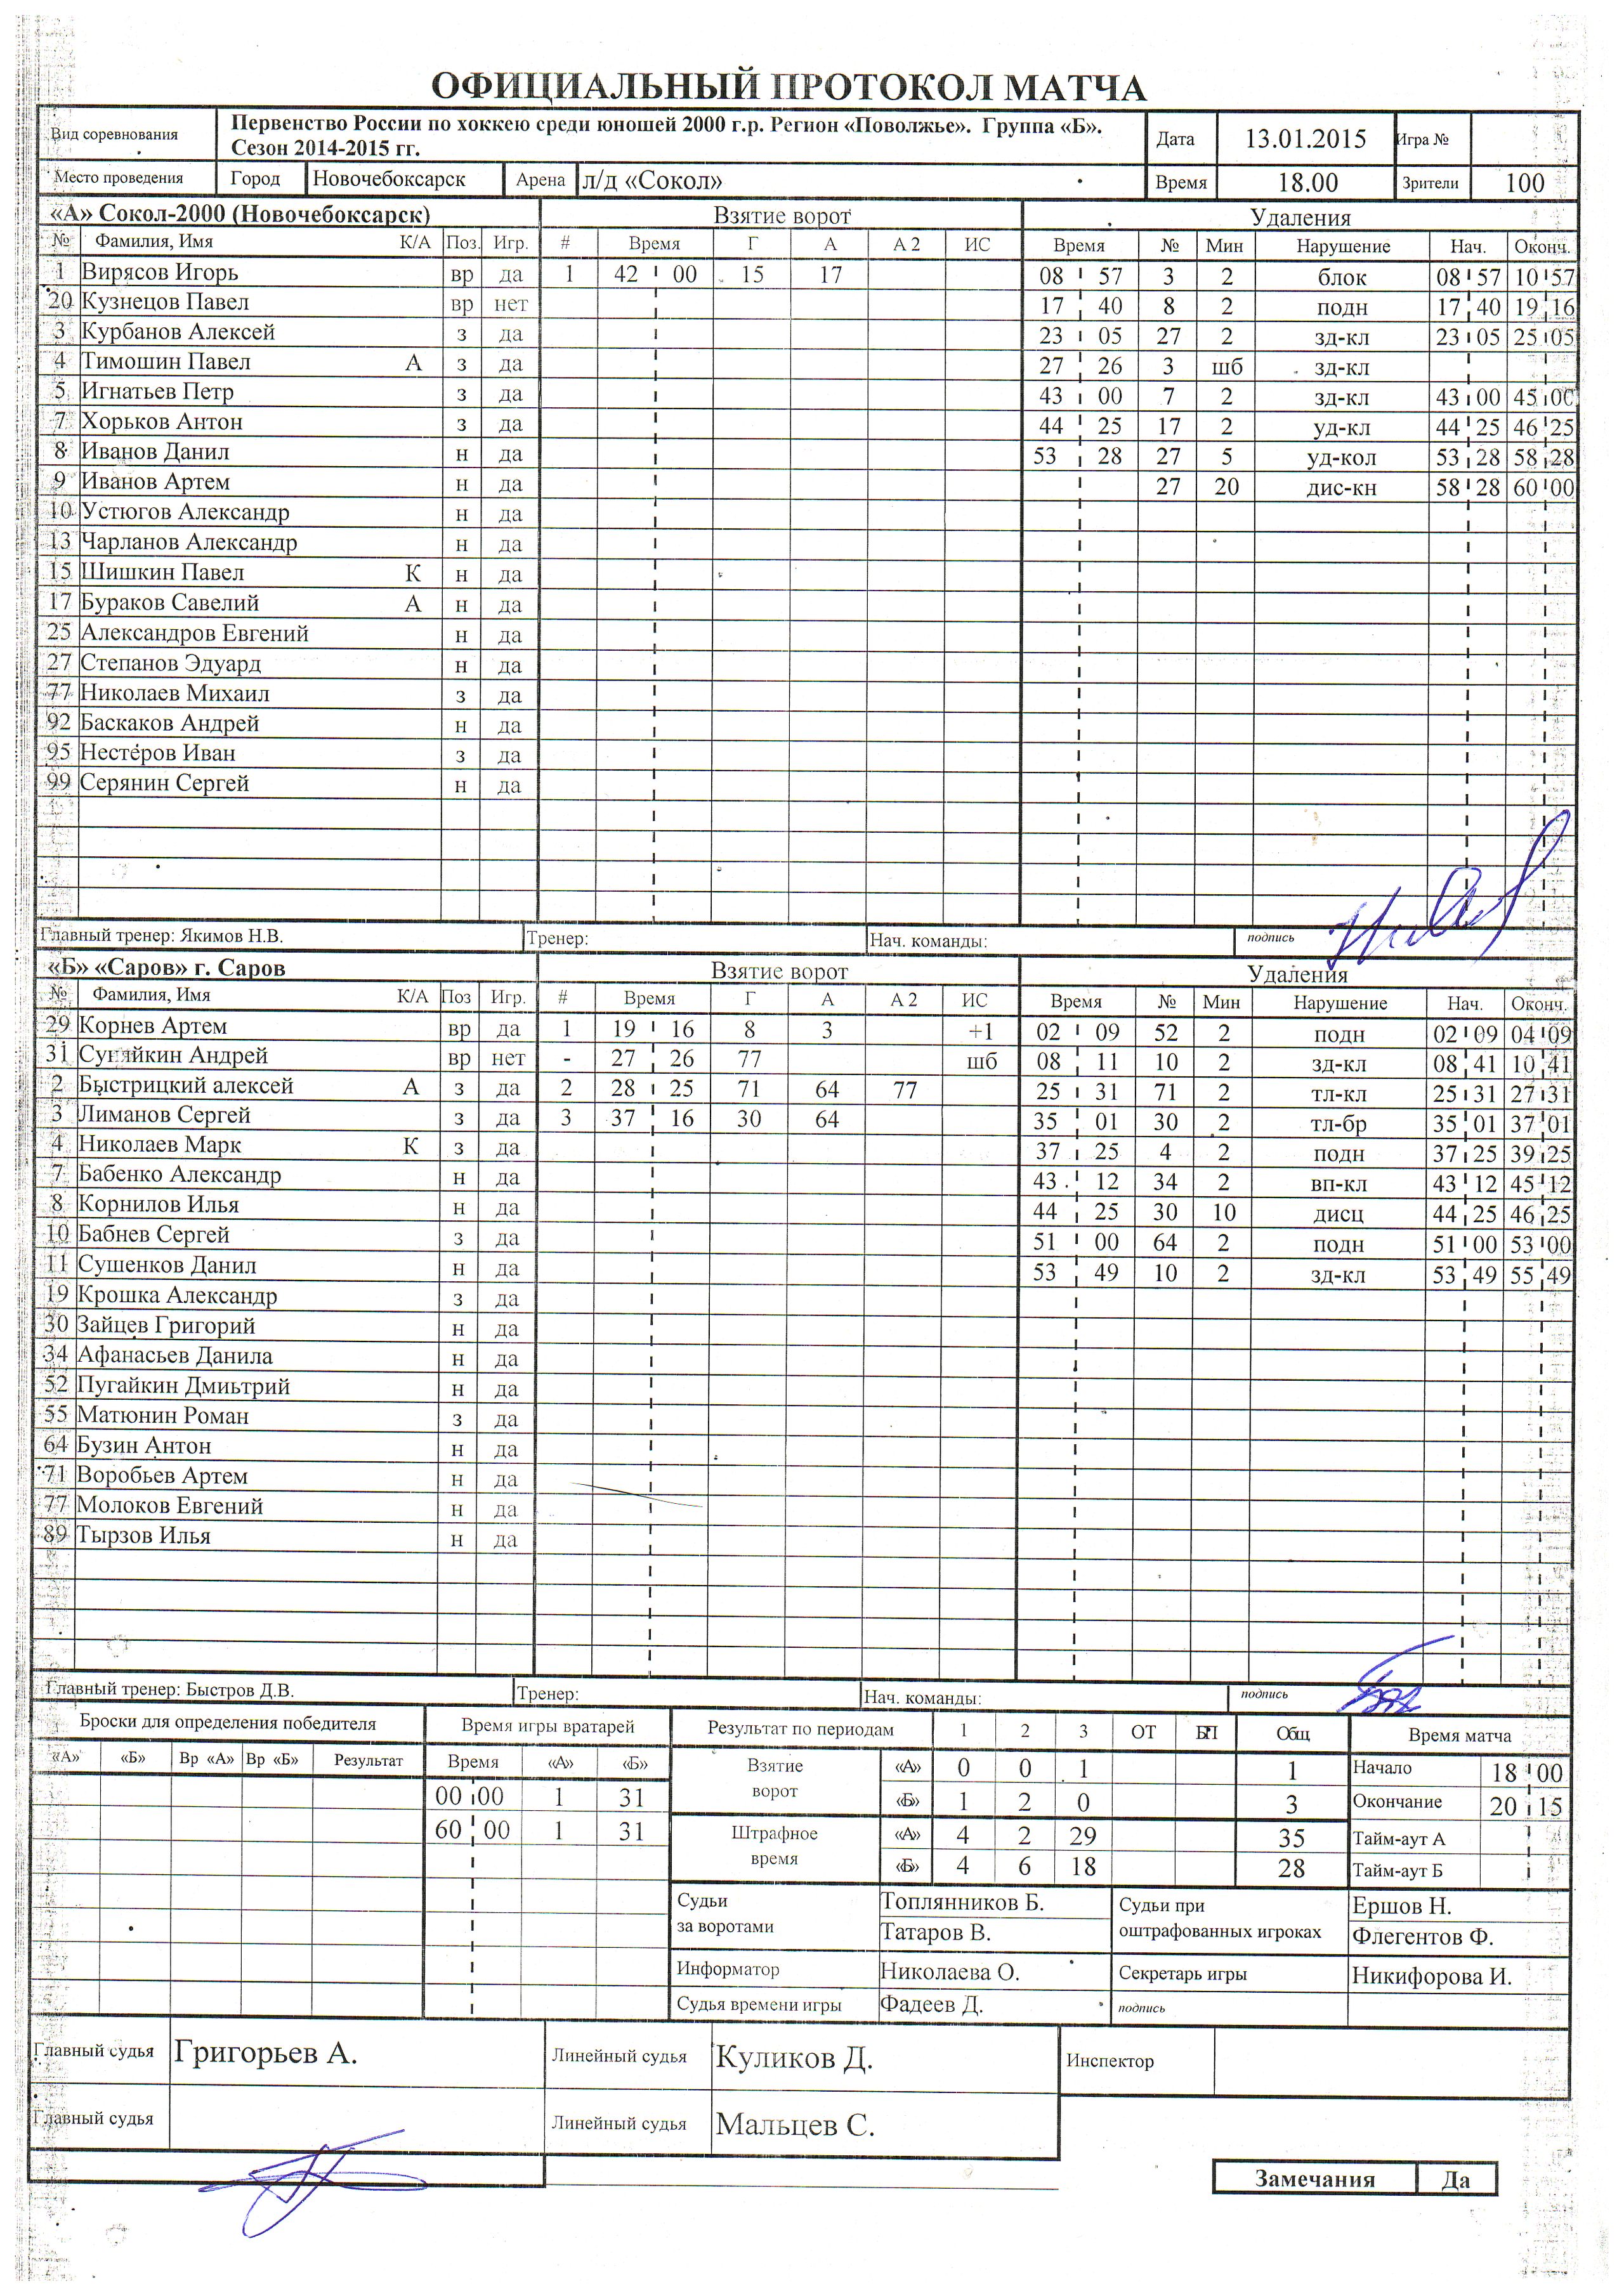 ОФИЦИАЛЬНЫЙ ПРОТОКОЛ МАТЧА
Вид соревнования Первенство России по хоккею среди юношей 2000 г.р. Регион «Поволжье». Группа «Б». Сезон 2014-2015 гг. Дата 13.01.2015 Игра №
Место проведения Город Новочебоксарск Арена л/д «Сокол» Время 18.00 Зрители 100
«А» Сокол-2000 (Новочебоксарск) Взятие ворот Удаления
№ Фамилия, Имя К/А Поз. Игр. # Время Г А А 2 ИС Время № Мин Нарушение Нач. Оконч.
1 Вирясов Игорь вр да 1 42 00 15 17 08 57 3 2 блок 08 57 10 57
20 Кузнецов Павел вр нет 17 40 8 2 подн 17 40 19 16
3 Курбанов Алексей з да 23 05 27 2 зд-кл 23 05 25 05
4 Тимошин Павел А з да 27 26 3 шб зд-кл
5 Игнатьев Петр з да 43 00 7 2 зд-кл 43 00 45 00
7 Хорьков Антон з да 44 25 17 2 уд-кл 44 25 46 25
8 Иванов Данил н да 53 28 27 5 уд-кол 53 28 58 28
9 Иванов Артем н да 27 20 дис-кн 58 28 60 00
10 Устюгов Александр н да
13 Чарланов Александр н да
15 Шишкин Павел К н да
17 Бураков Савелий А н да
25 Александров Евгений н да
27 Степанов Эдуард н да
77 Николаев Михаил з да
92 Баскаков Андрей н да
95 Нестеров Иван з да
99 Серянин Сергей н да
Главный тренер: Якимов Н.В. Тренер: Нач. команды: подпись
«Б» «Саров» г. Саров Взятие ворот Удаления
№ Фамилия, Имя К/А Поз Игр. # Время Г А А 2 ИС Время № Мин Нарушение Нач. Оконч.
29 Корнев Артем вр да 1 19 16 8 3 +1 02 09 52 2 подн 02 09 04 09
31 Суняйкин Андрей вр нет - 27 26 77 шб 08 11 10 2 зд-кл 08 41 10 41
2 Быстрицкий алексей А з да 2 28 25 71 64 77 25 31 71 2 тл-кл 25 31 27 31
3 Лиманов Сергей з да 3 37 16 30 64 35 01 30 2 тл-бр 35 01 37 01
4 Николаев Марк К з да 37 25 4 2 подн 37 25 39 25
7 Бабенко Александр н да 43 12 34 2 вп-кл 43 12 45 12
8 Корнилов Илья н да 44 25 30 10 дисц 44 25 46 25
10 Бабнев Сергей з да 51 00 64 2 подн 51 00 53 00
11 Сушенков Данил н да 53 49 10 2 зд-кл 53 49 55 49
19 Крошка Александр з да
30 Зайцев Григорий н да
34 Афанасьев Данила н да
52 Пугайкин Дмиьтрий н да
55 Матюнин Роман з да
64 Бузин Антон н да
71 Воробьев Артем н да
77 Молоков Евгений н да
89 Тырзов Илья н да
Главный тренер: Быстров Д.В. Тренер: Нач. команды: подпись
Броски для определения победителя Время игры вратарей Результат по периодам 1 2 3 ОТ БП Общ Время матча
«А» «Б» Вр «А» Вр «Б» Результат Время «А» «Б» Взятие ворот «А» 0 0 1 1 Начало 18 00
00 00 1 31 «Б» 1 2 0 3 Окончание 20 15
60 00 1 31 Штрафное время «А» 4 2 29 35 Тайм-аут А
«Б» 4 6 18 28 Тайм-аут Б
Судьи за воротами Топлянников Б. Судьи при оштрафованных игроках Ершов Н.
Татаров В. Флегентов Ф.
Информатор Николаева О. Секретарь игры Никифорова И.
Судья времени игры Фадеев Д. подпись
Главный судья Григорьев А. Линейный судья Куликов Д. Инспектор
Главный судья Линейный судья Мальцев С.
Замечания Да